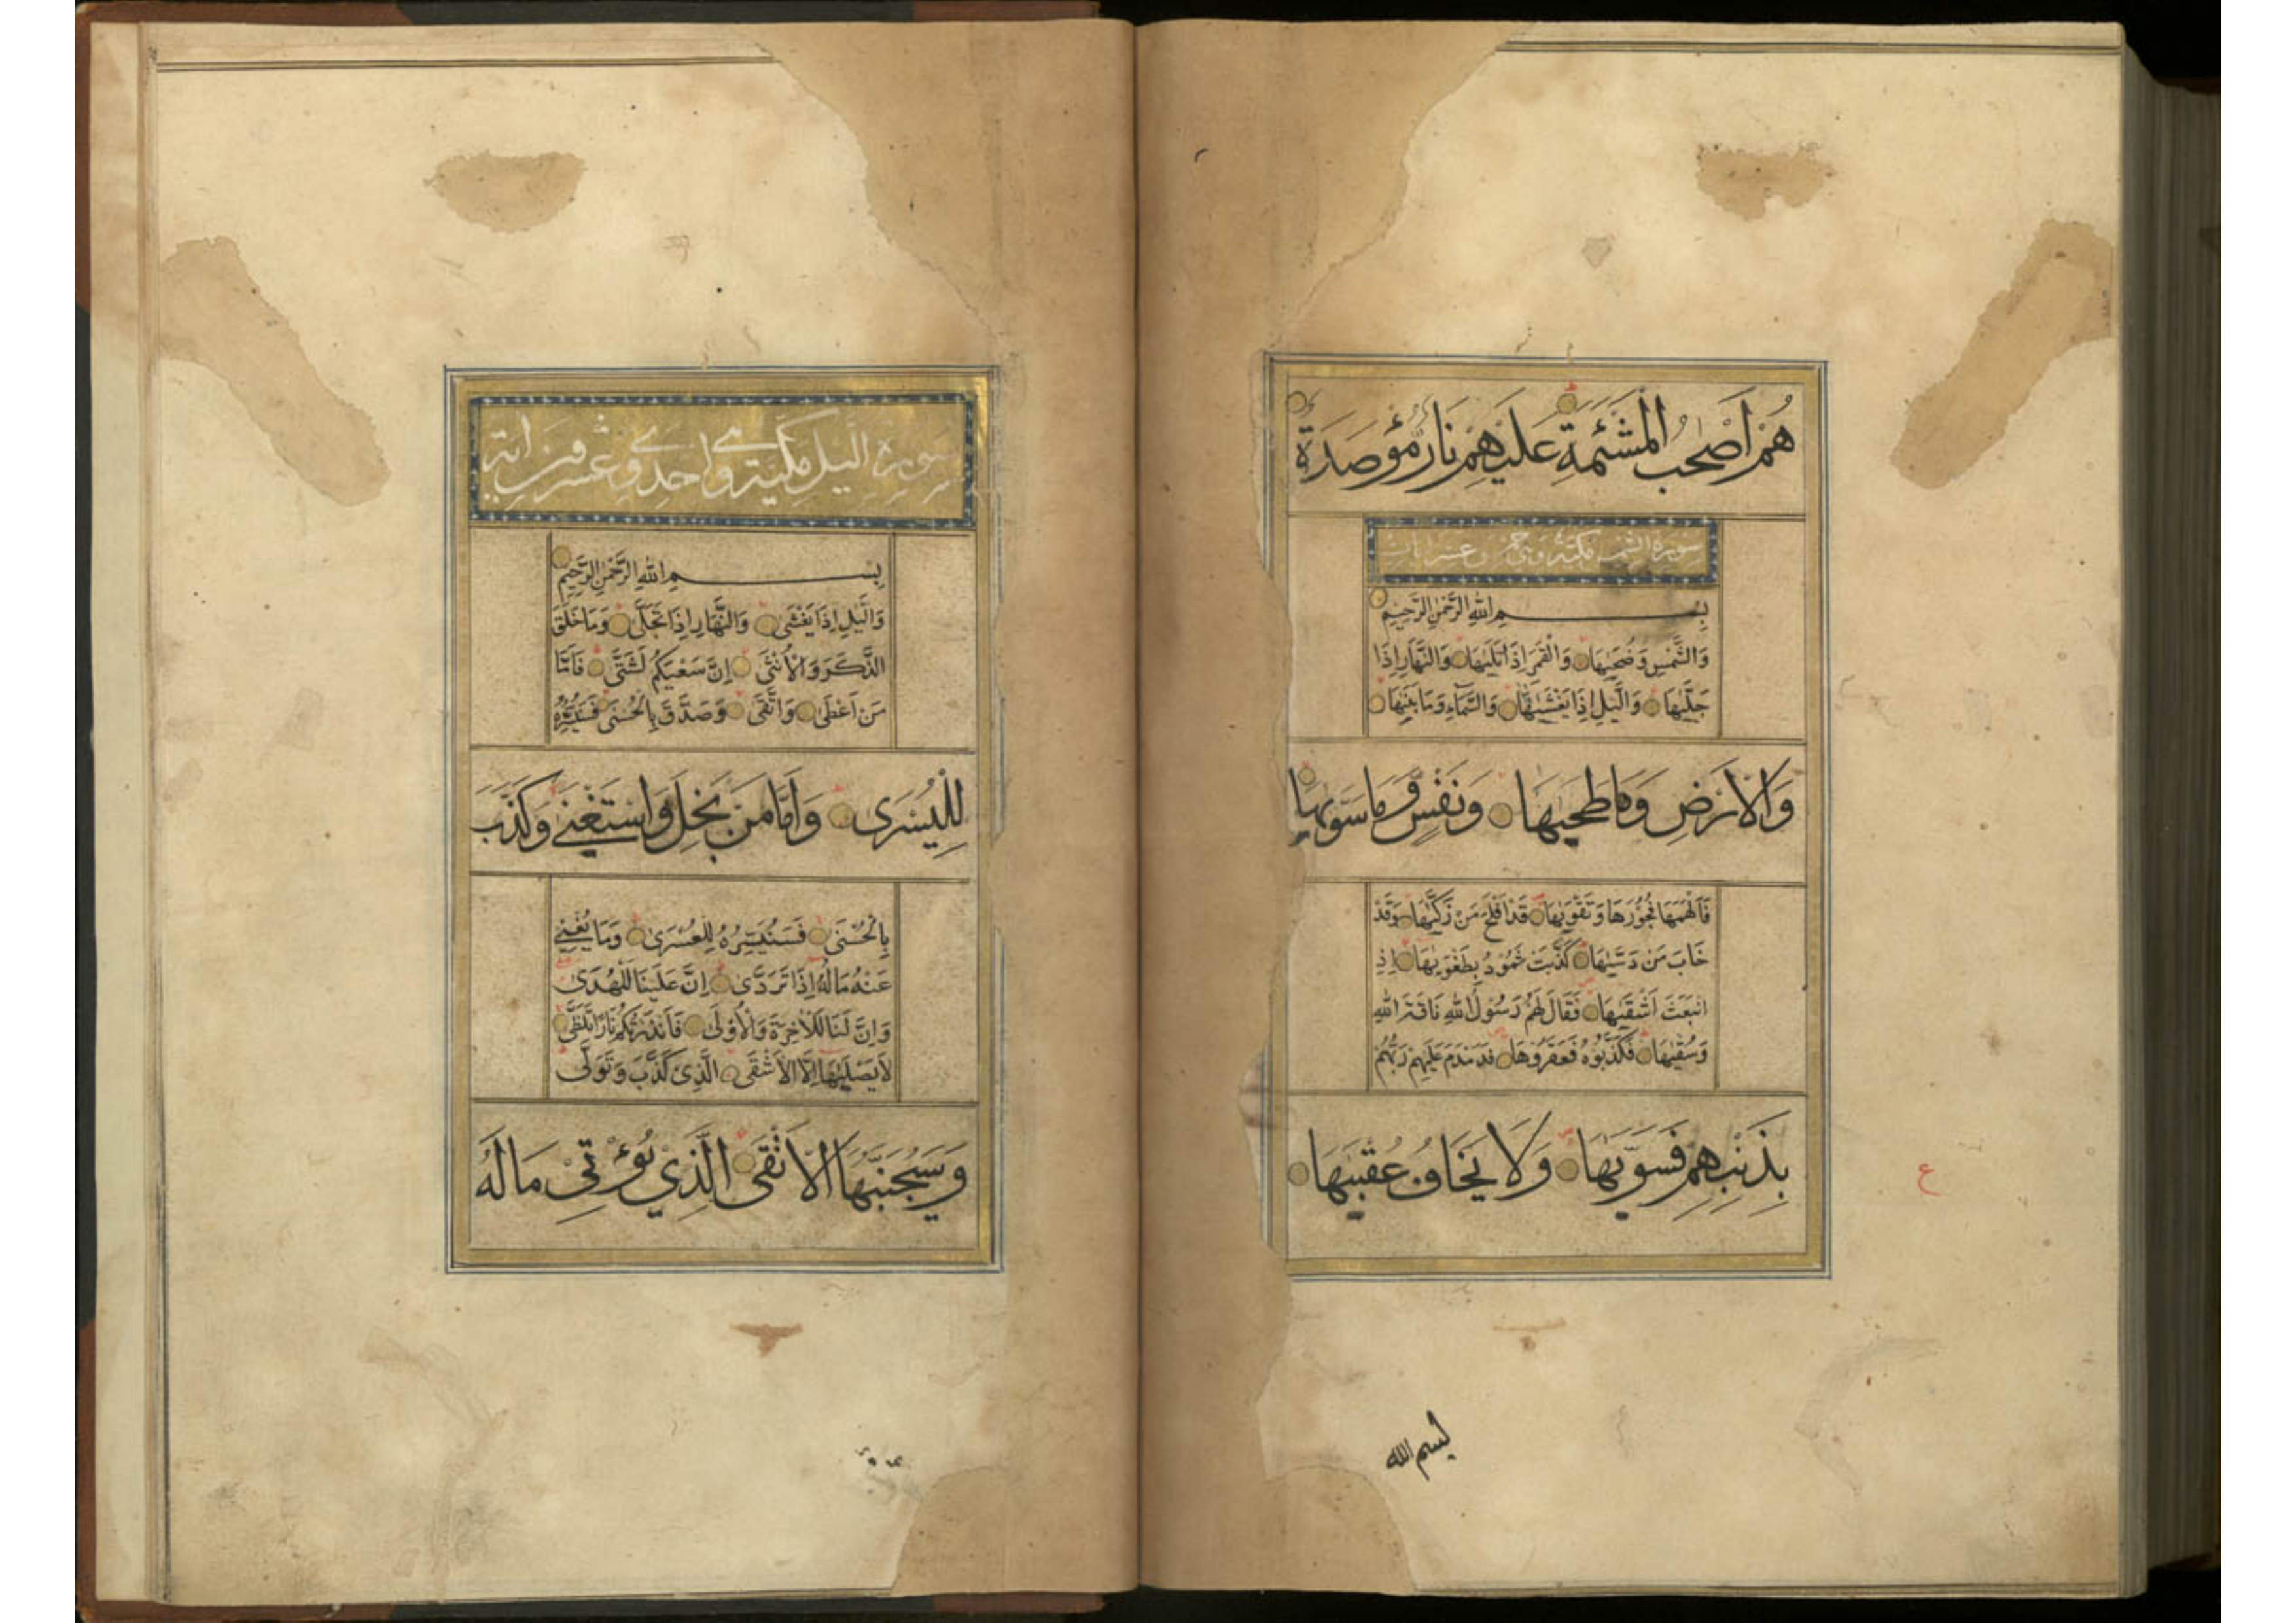 هُمْ اَصْحٰبُ الْمَشْئَمَةِ عَلَيْهِمْ نَارٌ مُؤْصَدَةٌ
سورة الشمس مكية وهى خمس وعشر ايات
بِسْمِ اللهِ الرَّحْمٰنِ الرَّحِيْمِ
وَالشَّمْسِ وَضُحٰيهَا وَالْقَمَرِ اِذَا تَلٰيهَا وَالنَّهَارِ اِذَا
جَلّٰيهَا وَالَّيْلِ اِذَا يَغْشٰيهَا وَالسَّمَاءِ وَمَا بَنٰيهَا
وَالْاَرْضِ وَمَا طَحٰيهَا وَنَفْسٍ وَمَا سَوّٰيهَا
فَاَلْهَمَهَا فُجُوْرَهَا وَتَقْوٰيهَا قَدْ اَفْلَحَ مَنْ زَكّٰيهَا وَقَدْ
خَابَ مَنْ دَسّٰيهَا كَذَّبَتْ ثَمُوْدُ بِطَغْوٰيهَا اِذِ
انْبَعَثَ اَشْقٰيهَا فَقَالَ لَهُمْ رَسُوْلُ اللهِ نَاقَةَ اللهِ
وَسُقْيٰهَا فَكَذَّبُوْهُ فَعَقَرُوْهَا فَدَمْدَمَ عَلَيْهِمْ رَبُّهُمْ
بِذَنْبِهِمْ فَسَوّٰيهَا وَلَا يَخَافُ عُقْبٰيهَا
ع
بسم الله
سورة اليل مكية وهى احدى وعشرون اية
بِسْمِ اللهِ الرَّحْمٰنِ الرَّحِيْمِ
وَالَّيْلِ اِذَا يَغْشٰى وَالنَّهَارِ اِذَا تَجَلّٰى وَمَا خَلَقَ
الذَّكَرَ وَالْاُنْثٰى اِنَّ سَعْيَكُمْ لَشَتّٰى فَاَمَّا
مَنْ اَعْطٰى وَاتَّقٰى وَصَدَّقَ بِالْحُسْنٰى فَسَنُيَسِّرُهُ
لِلْيُسْرٰى وَاَمَّا مَنْ بَخِلَ وَاسْتَغْنٰى وَكَذَّبَ
بِالْحُسْنٰى فَسَنُيَسِّرُهُ لِلْعُسْرٰى وَمَا يُغْنِيْ
عَنْهُ مَالُهُ اِذَا تَرَدّٰى اِنَّ عَلَيْنَا لَلْهُدٰى
وَاِنَّ لَنَا لَلْاٰخِرَةَ وَالْاُوْلٰى فَاَنْذَرْتُكُمْ نَارًا تَلَظّٰى
لَا يَصْلٰيهَا اِلَّا الْاَشْقٰى الَّذِيْ كَذَّبَ وَتَوَلّٰى
وَسَيُجَنَّبُهَا الْاَتْقٰى الَّذِيْ يُؤْتِيْ مَالَهُ